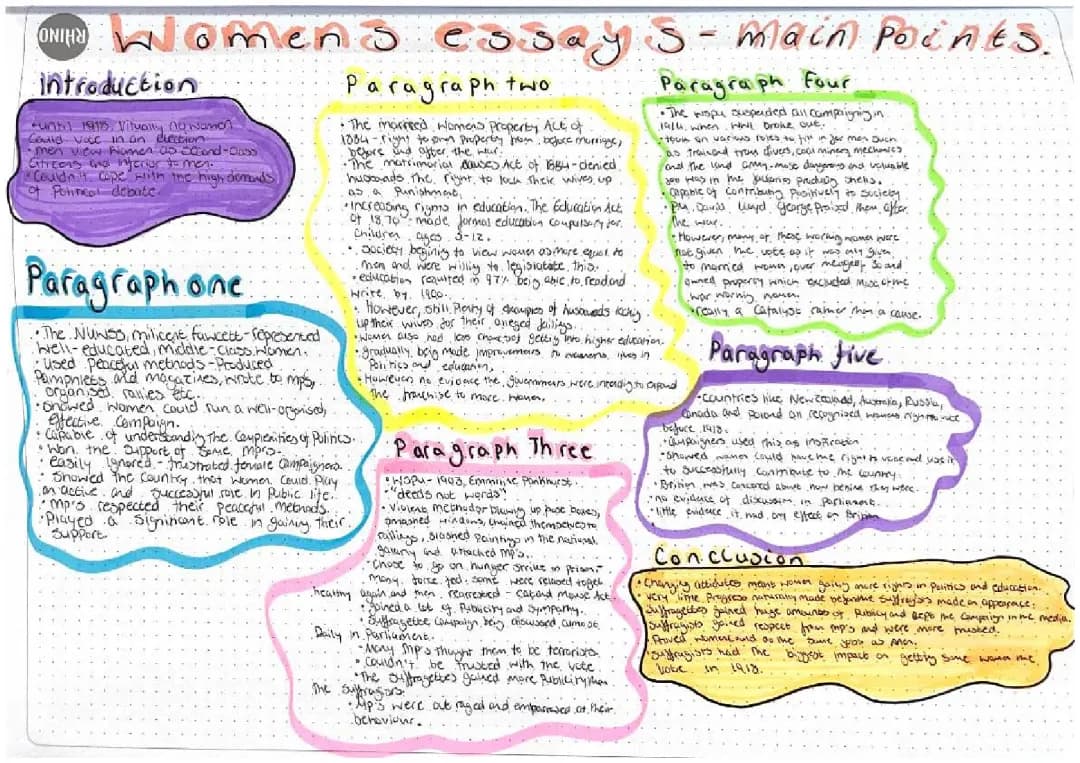 RHINO
Womens essays - main points.
Introduction
• Until 1918, Vitually no women
could vote in an election
• men view women as second-class
citizens and inferior to men.
• Couldn't cope with the high demands
of Political debate.
Paragraph one
• The NUWSS, milicent fawcett - represented
well-educated, middle-class women.
• used peaceful methods - Produced
Pamphlets and magazines, wrote to mps,
organised rallies etc.
• Showed women could run a well-orgnised,
effective campaign.
• Capable of understanding the complexities of Politics.
• Won the support of some mprs.
• easily ignored - frustrated female campaigners.
• Showed the country that women could Play
an active and successful role in Public life.
• MP's respected their peaceful methods.
• Played a significant role in gaining their
support.
Paragraph two
• The married womens Property Act of
1884 - right to own property from before marriage,
before and after the war.
• The matrimonial causes Act of 1884 - denied
husbands the right to lock their wives up
as a Punishment.
• Increasing rights in education. The Education Act
of 1870 - made formal education compulsory for
children ages 5-12.
• society begining to view women as more equal to
men and were willing to legislate this.
• education resulted in 97% being able to read and
write by 1900.
• However, still Plenty of examples of husbands locking
up their wives for their alleged failings.
• women also had less chance of getting into higher education.
• gradually being made improvements to womens lives in
Politics and education.
• However no evidence the governments were intending to expand
the franchise to more women.
Paragraph Three
• WSPU - 1903, Emmiline Pankhurst.
"deeds not words"
• Violent methods of blowing up post boxes,
smashed windows, chained themselves to
railings, slashed paintings in the national
gallery and attacked MP's.
• Chose to go on hunger strike in prison.
Many force fed. some were relased to get
healthy again and then rearrested - cat and mouse Act.
• gained a lot of Publicity and sympathy.
• Suffragette campaign being discussed almost
Daily in Parliament.
- Many MP's thought them to be terrorists.
• Couldn't be trusted with the vote.
• The suffragettes gained more Publicity than
The suffragists.
• MP's were out raged and embarrassed at their
behaviour.
Paragraph four
• The WSPU suspended all campaigning in
1914, when WW1 broke out.
• took on various roles to fill in for men such
as train and tram drivers, coal miners, mechanics
and the land army. most dangerous and valuable
job was in the factories producing shells.
• Capable of contributing positively to society
• PM, David Lloyd George Praised them after
the war.
• However, many of these working women were
not given the vote as it was only given
to married women, over the age of 30 and
owned property which excluded most of the
war working women.
• really a catalyst rather than a cause.
Paragraph five
• Countries like New Zealand, Australia, Russia,
Canada and Poland all recognised womens right to vote
before 1918.
• Campaigners used this as inspiration
• Showed women could have the right to vote and use it
to successfully contribute to the country.
• Britian was concerned about how behind they were.
• no evidence of discussion in Parliament.
• little evidence it had any effect on Britain
Conclusion
• Changing attitudes meant women gaining more rights in Politics and education.
very little Progress naturally made before the suffragists made an appearance.
Suffragettes gained huge amounts of Publicity and kept the campaign in the media.
Suffragists gained respect from MP's and were more trusted.
Proved women could do the same jobs as men.
Suffragists had the biggest impact on getting some women the
vote in 1918.